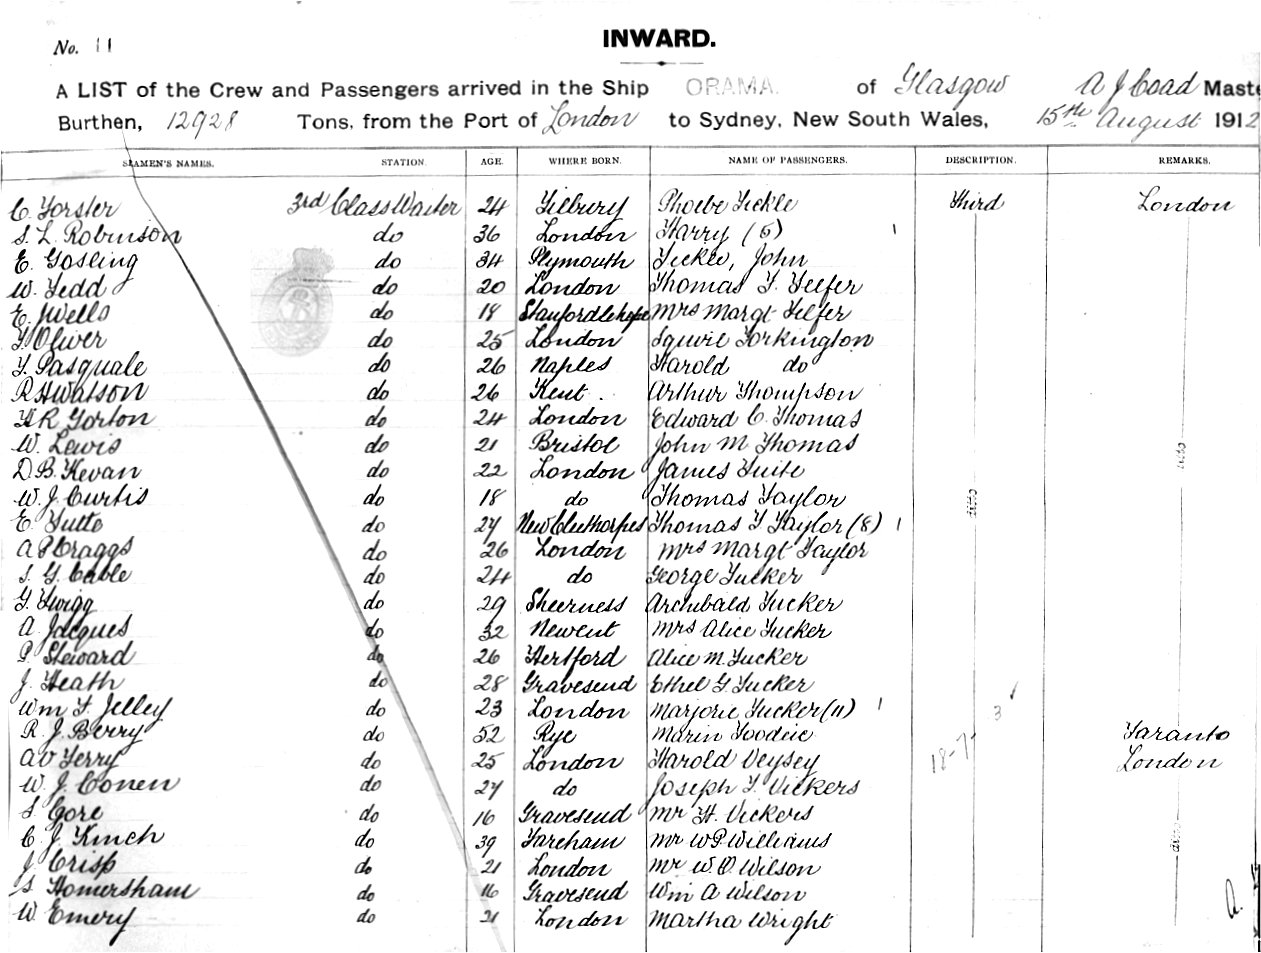 No. 11
INWARD.
A LIST of the Crew and Passengers arrived in the Ship ORAMA. of Glasgow A J Coad Maste
Burthen, 12928 Tons, from the Port of London to Sydney, New South Wales, 15th August 1912
SEAMEN'S NAMES. STATION. AGE. WHERE BORN. NAME OF PASSENGERS. DESCRIPTION. REMARKS.
C. Forster 3rd Class Waiter 24 Tilbury Phoebe Tickle Third London
S. L. Robinson do 36 London Harry (5) 1
E. Gosling do 34 Plymouth Tickle, John
W. Tedd do 20 London Thomas F. Telfer
E. J Wells do 18 Stanfordlehope Mrs Margt Telfer
Oliver do 25 London Squire Torkington
Pasquale do 26 Naples Harold do
R H Watson do 26 Kent. Arthur Thompson
H R Gorton do 24 London Edward C. Thomas
W. Lewis do 21 Bristol John M Thomas
D. B. Kevan do 22 London James Tuite
W. J. Curtis do 18 do Thomas Taylor
E. Tutte do 27 New Cleethorpes Thomas T Taylor (8) 1
A P Craggs do 26 London Mrs Margt Taylor
S. G. Cable do 24 do George Tucker
Twigg do 29 Sheerness Archibald Tucker
A Jacques do 32 Newent Mrs Alice Tucker
P. Steward do 26 Hertford Alice M. Tucker
J. Heath do 28 Gravesend Ethel G. Tucker
Wm F. Jelley do 23 London Marjorie Tucker (11) 1 3
R. J. Berry do 52 Rye Marin Toodeie Taranto
A V Terry do 25 London Harold Veysey 18-7 London
W. J. Conen do 27 do Joseph T. Vickers
S. Gore do 16 Gravesend Mr H. Vickers
C. J. Kinch do 39 Fareham Mr W P Williams
J Crisp do 21 London Mr W. O. Wilson
S Homersham do 16 Gravesend Wm A Wilson
W Emery do 21 London Martha Wright
ditto
ditto
ditto
A.